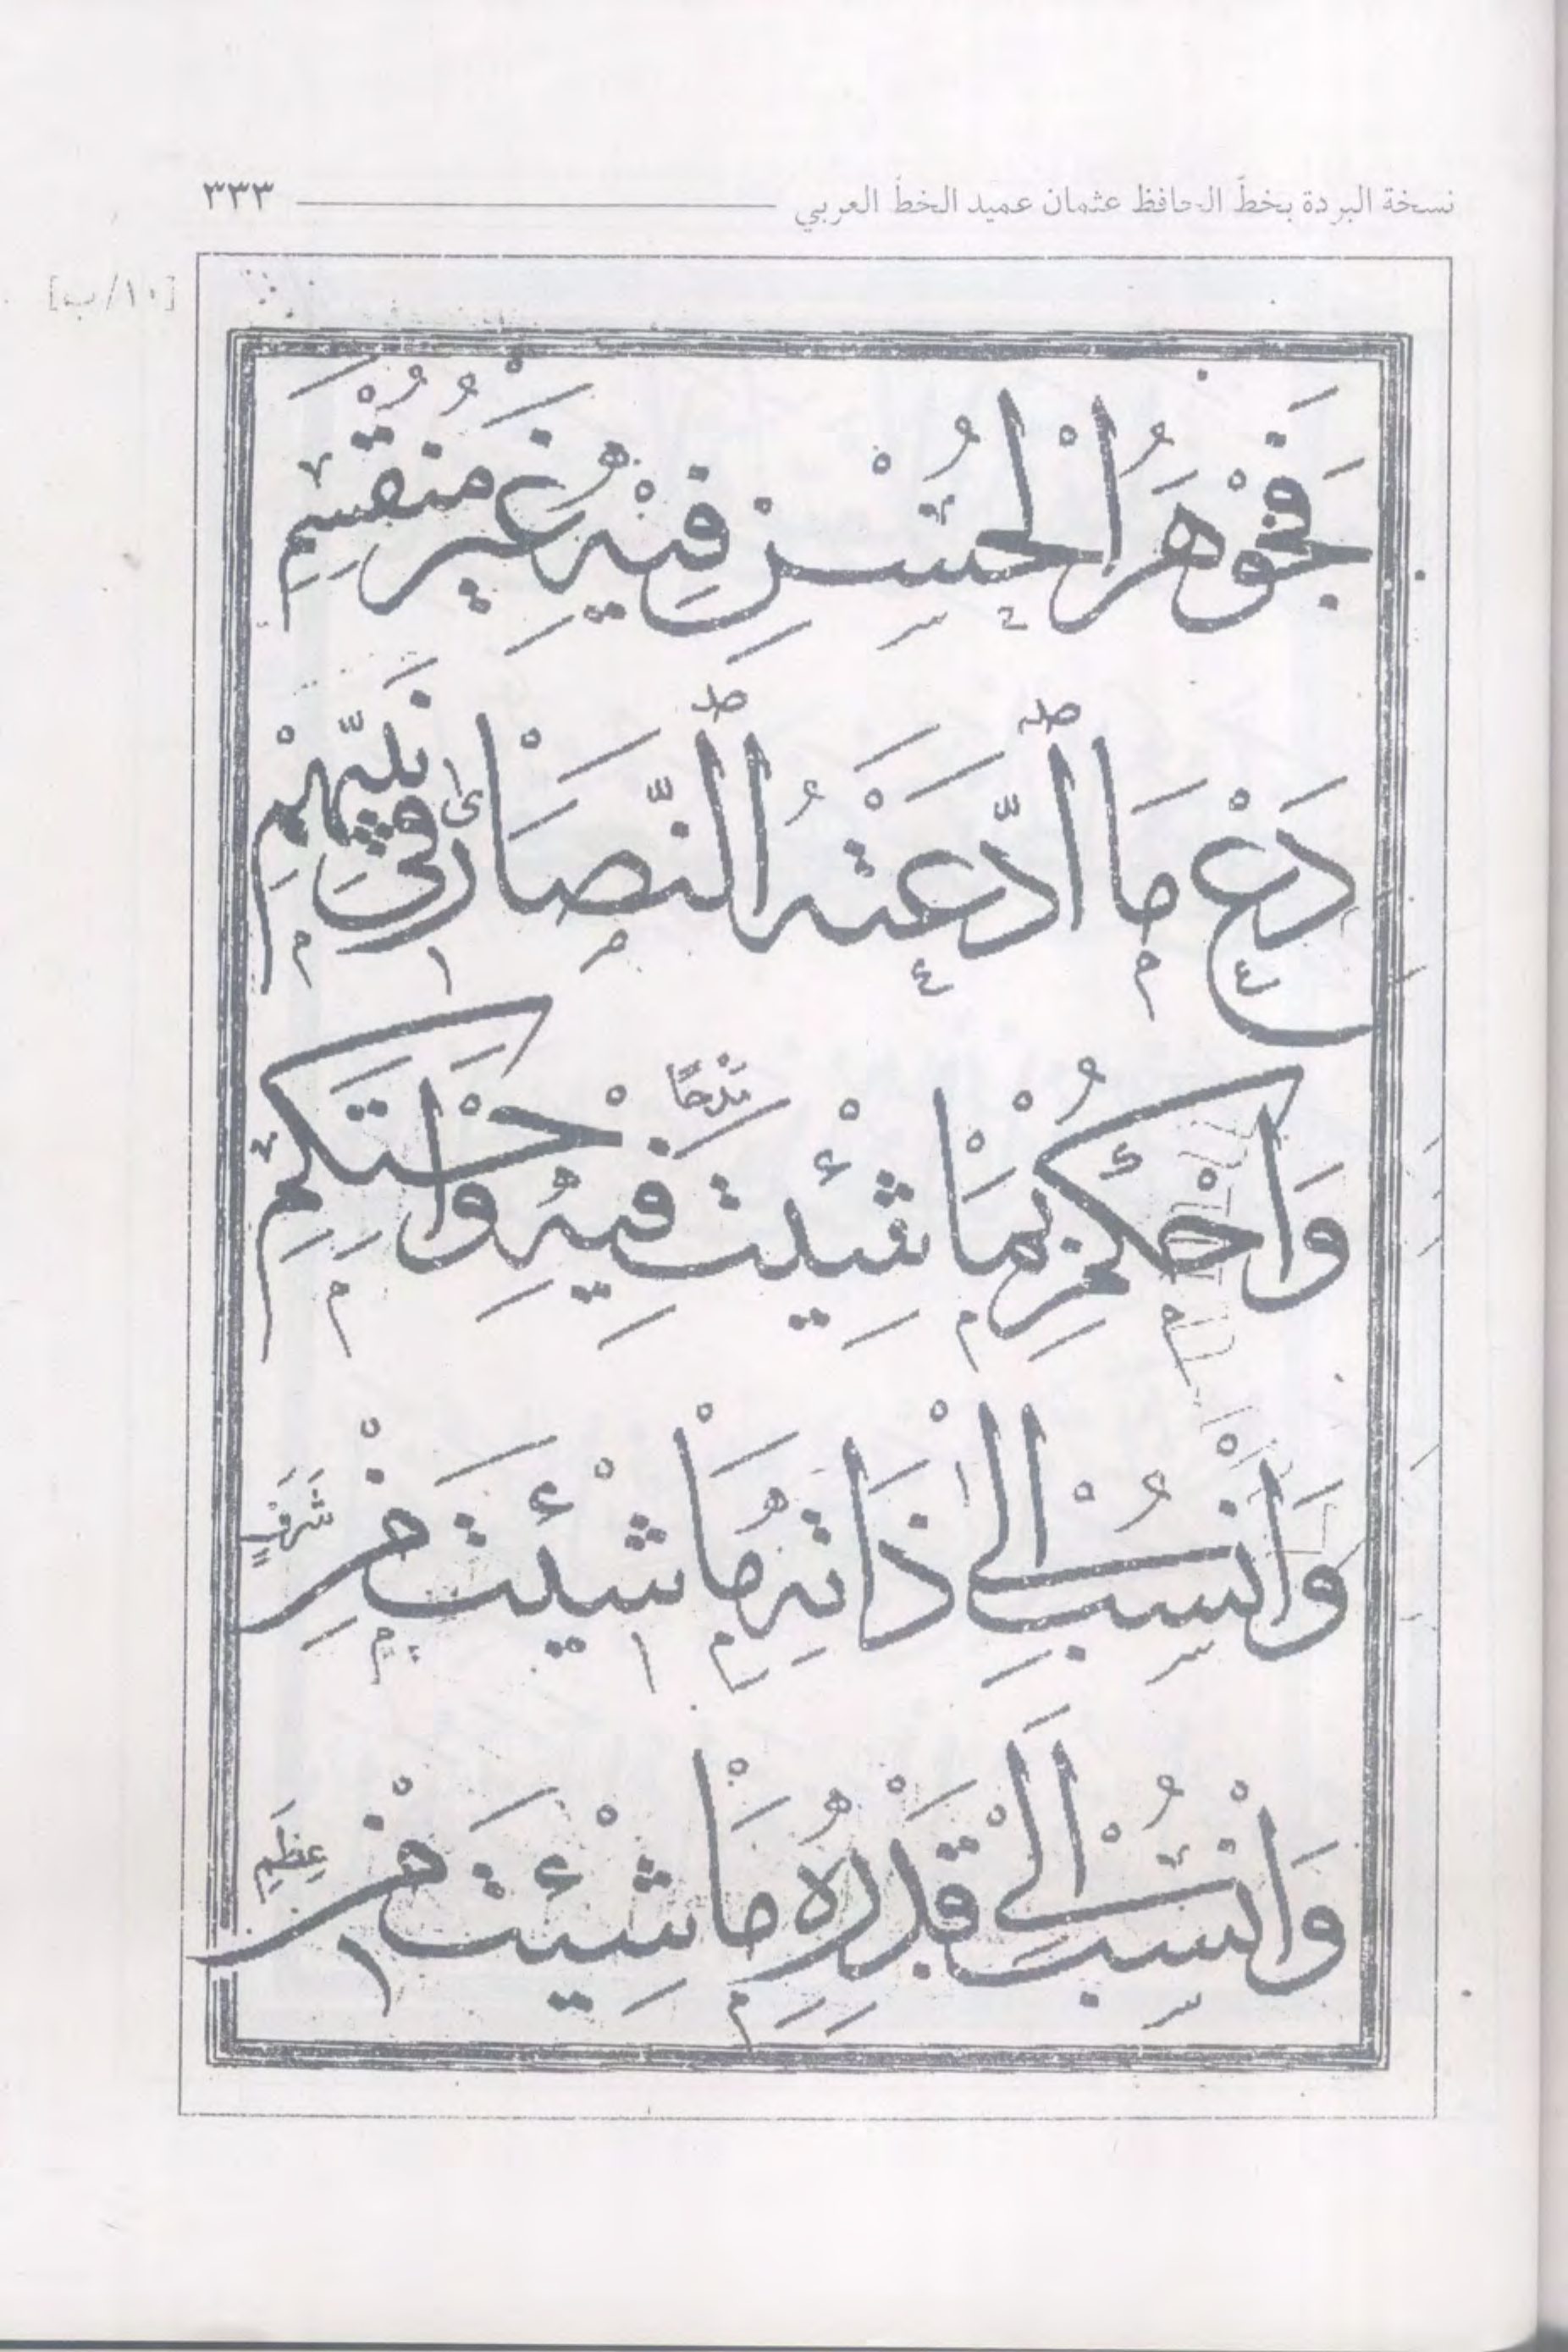 نسخة البردة بخطّ الحافظ عثمان عميد الخطّ العربي ٣٣٣
[١٠/ب]
فَجَوْهَرُ الْحُسْنِ فِيْهِ غَيْرُ مُنْقَسِمِ
دَعْ مَا ادَّعَتْهُ النَّصَارٰى فِي نَبِيِّهِمْ
وَاحْكُمْ بِمَا شِئْتَ مَدْحًا فِيهِ وَاحْتَكِمِ
وَانْسُبْ اِلٰى ذَاتِهِ مَا شِئْتَ مِنْ شَرَفٍ
وَانْسُبْ اِلٰى قَدْرِهِ مَا شِئْتَ مِنْ عِظَمِ